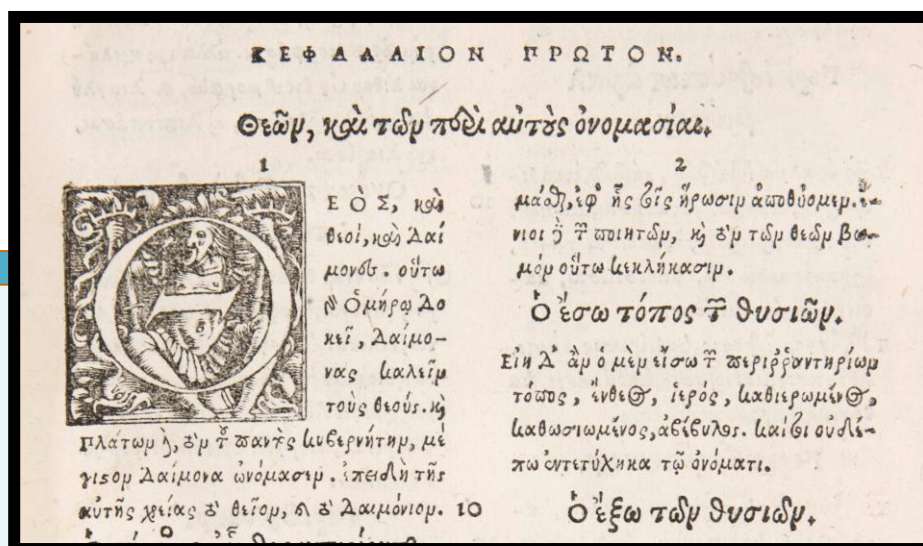 ΚΕΦΑΛΑΙΟΝ ΠΡΩΤΟΝ.
Θεῶν, καὶ τῶν περὶ αὐτοὺς ὀνομασίαι.
1
ΘΕΟΣ, καὶ
θεοὶ, καὶ Δαί
μονες. οὕτω
γὰρ Ὁμήρῳ δο
κεῖ, Δαίμο-
νας καλεῖν
τοὺς θεούς. καὶ
Πλάτων δὲ, τὸν τοῦ παντὸς κυβερνήτην, μέ
γιστον Δαίμονα ὠνόμασεν. ἐπειδὴ τῆς
αὐτῆς χρείας τὸ θεῖον, καὶ τὸ Δαιμόνιον. 10
2
ἐφ' ἧς τοῖς ἥρωσιν ἀποθύομεν. ἔ-
νιοι δὲ τῶν ποιητῶν, καὶ τὸν τῶν θεῶν βω-
μὸν οὕτω κεκλήκασιν.
Ὁ ἔσω τόπος τῶν θυσιῶν.
Εἴη δ' ἂν ὁ μὲν εἴσω τῶν περιῤῥαντηρίων
τόπος, ἔνθεος, ἱερός, καθιερωμένος,
καθωσιωμένος, ἀβέβηλος. καίτοι οὐδέ-
πω ἐντετύχηκα τῷ ὀνόματι.
Ὁ ἔξω τῶν θυσιῶν.